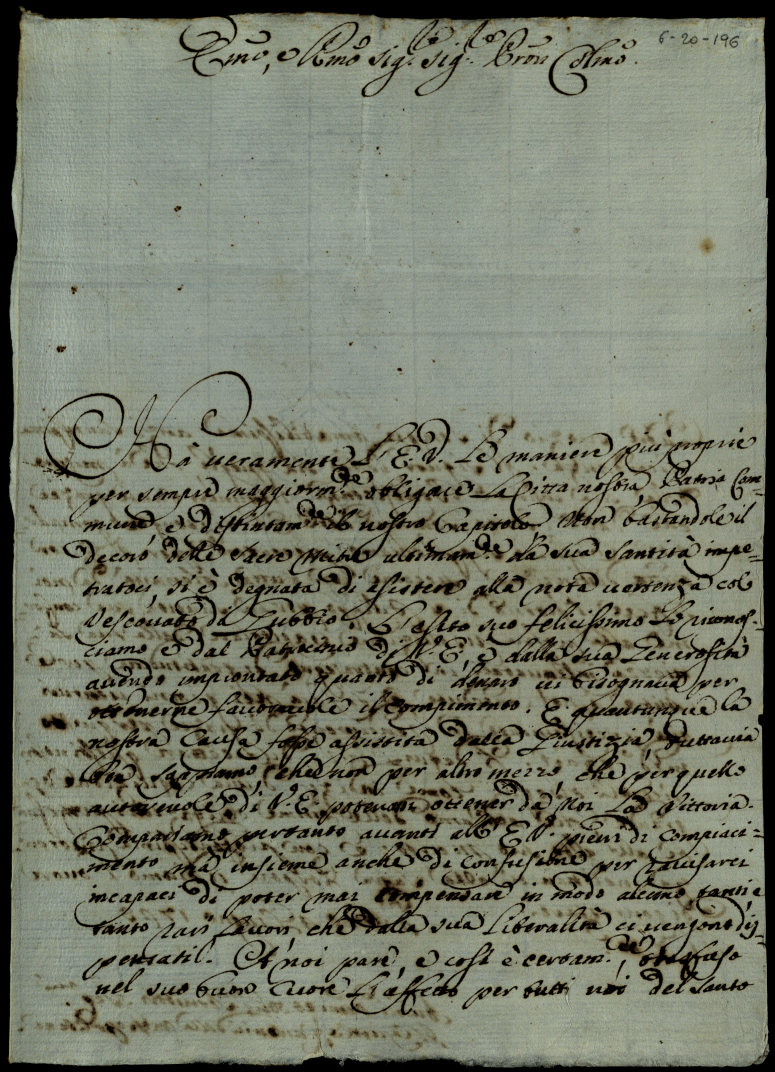 6-20-196
Emo, e Rmo Sig.re Sig.re Pron Colmo.
Hà veramente L'E. V. Le maniere più proprie
per sempre maggiorm.te obligare La Città nostra Patria Com-
mune e distintam.te il nostro Capitolo. Non bastandole il
decoro delle Sacre Mitre ultimam.te da sua Santità impe-
tratoci, si è degnata di assistere alla nota vertenza col
Vescovato di Gubbio. L'esito suo felicissimo Lo riconos-
ciamo e dal Patrocinio di V. E. e dalla sua Generosità
avendo improntato quanto di denaro ci bisognava per
ottenerne favorevole il compimento. E quantunque la
nostra Causa fosse assistita dalla Giustizia, tuttavia
sappiamo che non per altro mezzo, che per quello
autorevole di V. E. potevasi ottener da Noi La Vittoria.
Compariamo pertanto avanti all' E. V. pieni di compiaci-
mento mà insieme anche di confusione per ravisarci
incapaci di poter mai compensare in modo alcuno tanti e
tanto rari favori che dalla sua Liberalità ci vengono dis-
pensati. A noi pare, e così è certam.te,
nel suo buon Cuore L'affetto per tutti noi del Santo